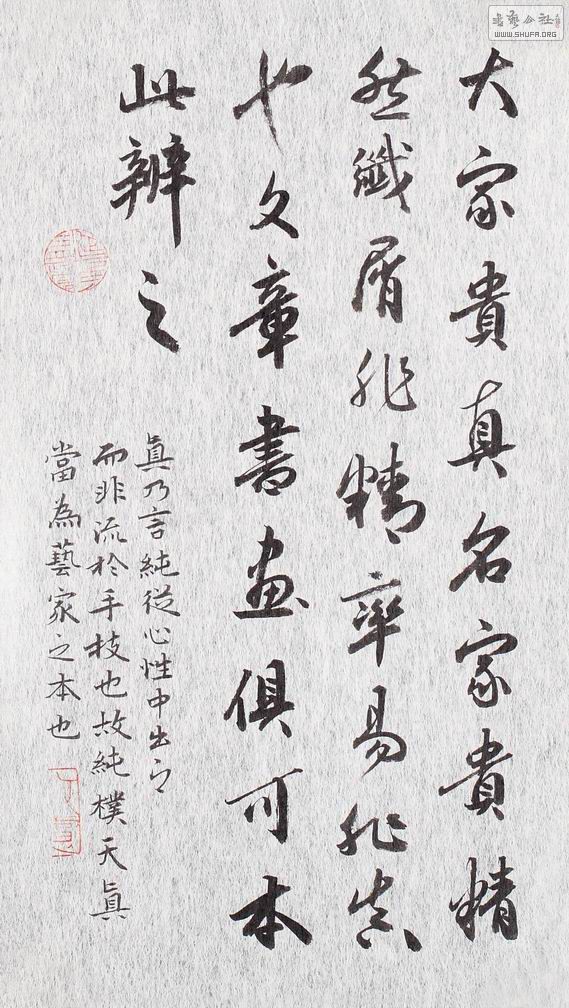 大家貴真名家貴精
然纖屑非精率易非真
也文章書画俱可本
此辨之
真乃言純從心性中出之
而非流於手技也故純樸天真
當為藝家之本也
書藝公社
WWW.SHUFA.ORG